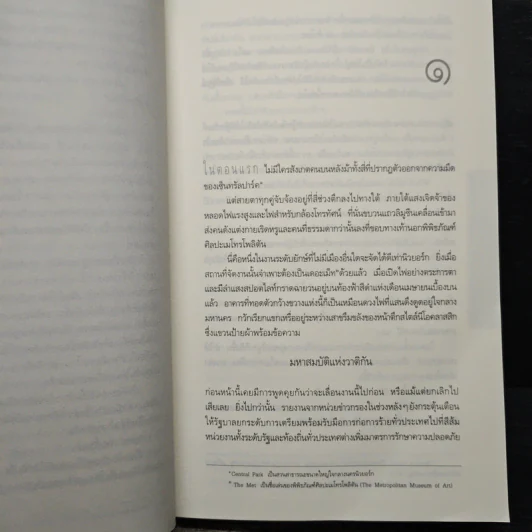 ๑
ในตอนแรก ไม่มีใครสังเกตคนบนหลังม้าทั้งสี่ที่ปรากฏตัวออกจากความมืด
ของเซ็นทรัลปาร์ค*
แต่สายตาทุกคู่จับจ้องอยู่ที่สี่ช่วงตึกลงไปทางใต้ ภายใต้แสงเจิดจ้าของ
หลอดไฟแรงสูงและไฟสำหรับกล้องโทรทัศน์ ที่นั่นขบวนแถวลิมูซีนเคลื่อนเข้ามา
ส่งคนดังแต่งกายเริดหรูและคนที่ธรรมดากว่านั้นลงที่ขอบทางเท้านอกพิพิธภัณฑ์
ศิลปะเมโทรโพลิตัน
นี่คือหนึ่งในงานระดับยักษ์ที่ไม่มีเมืองอื่นใดจะจัดได้ดีเท่านิวยอร์ก ยิ่งเมื่อ
สถานที่จัดงานนั้นจำเพาะต้องเป็นเดอะเม็ท*ด้วยแล้ว เมื่อเปิดไฟอย่างตระการตา
และมีลำแสงสปอตไลท์กราดฉายวนอยู่บนท้องฟ้าสีดำแห่งเดือนเมษายนเบื้องบน
แล้ว อาคารที่ทอดตัวกว้างขวางแห่งนี้ก็เป็นเหมือนดวงไฟที่แสนดึงดูดอยู่ใจกลาง
มหานคร กวักเรียกแขกเหรื่ออยู่ระหว่างเสาขรึมขลังของหน้าตึกสไตล์นีโอคลาสสิก
ซึ่งแขวนป้ายผ้าพร้อมข้อความ
มหาสมบัติแห่งวาติกัน
ก่อนหน้านี้เคยมีการพูดคุยกันว่าจะเลื่อนงานนี้ไปก่อน หรือแม้แต่ยกเลิกไป
เสียเลย ยิ่งไปกว่านั้น รายงานจากหน่วยข่าวกรองในช่วงหลังๆ ยังกระตุ้นเตือน
ให้รัฐบาลยกระดับการเตรียมพร้อมรับมือการก่อการร้ายทั่วประเทศไปที่สีส้ม
หน่วยงานทั้งระดับรัฐและท้องถิ่นทั่วประเทศต่างเพิ่มมาตรการรักษาความปลอดภัย
*Central Park เป็นสวนสาธารณะขนาดใหญ่ใจกลางนครนิวยอร์ก
* The Met เป็นชื่อเล่นของพิพิธภัณฑ์ศิลปะเมโทรโพลิตัน (The Metropolitan Museum of Art)